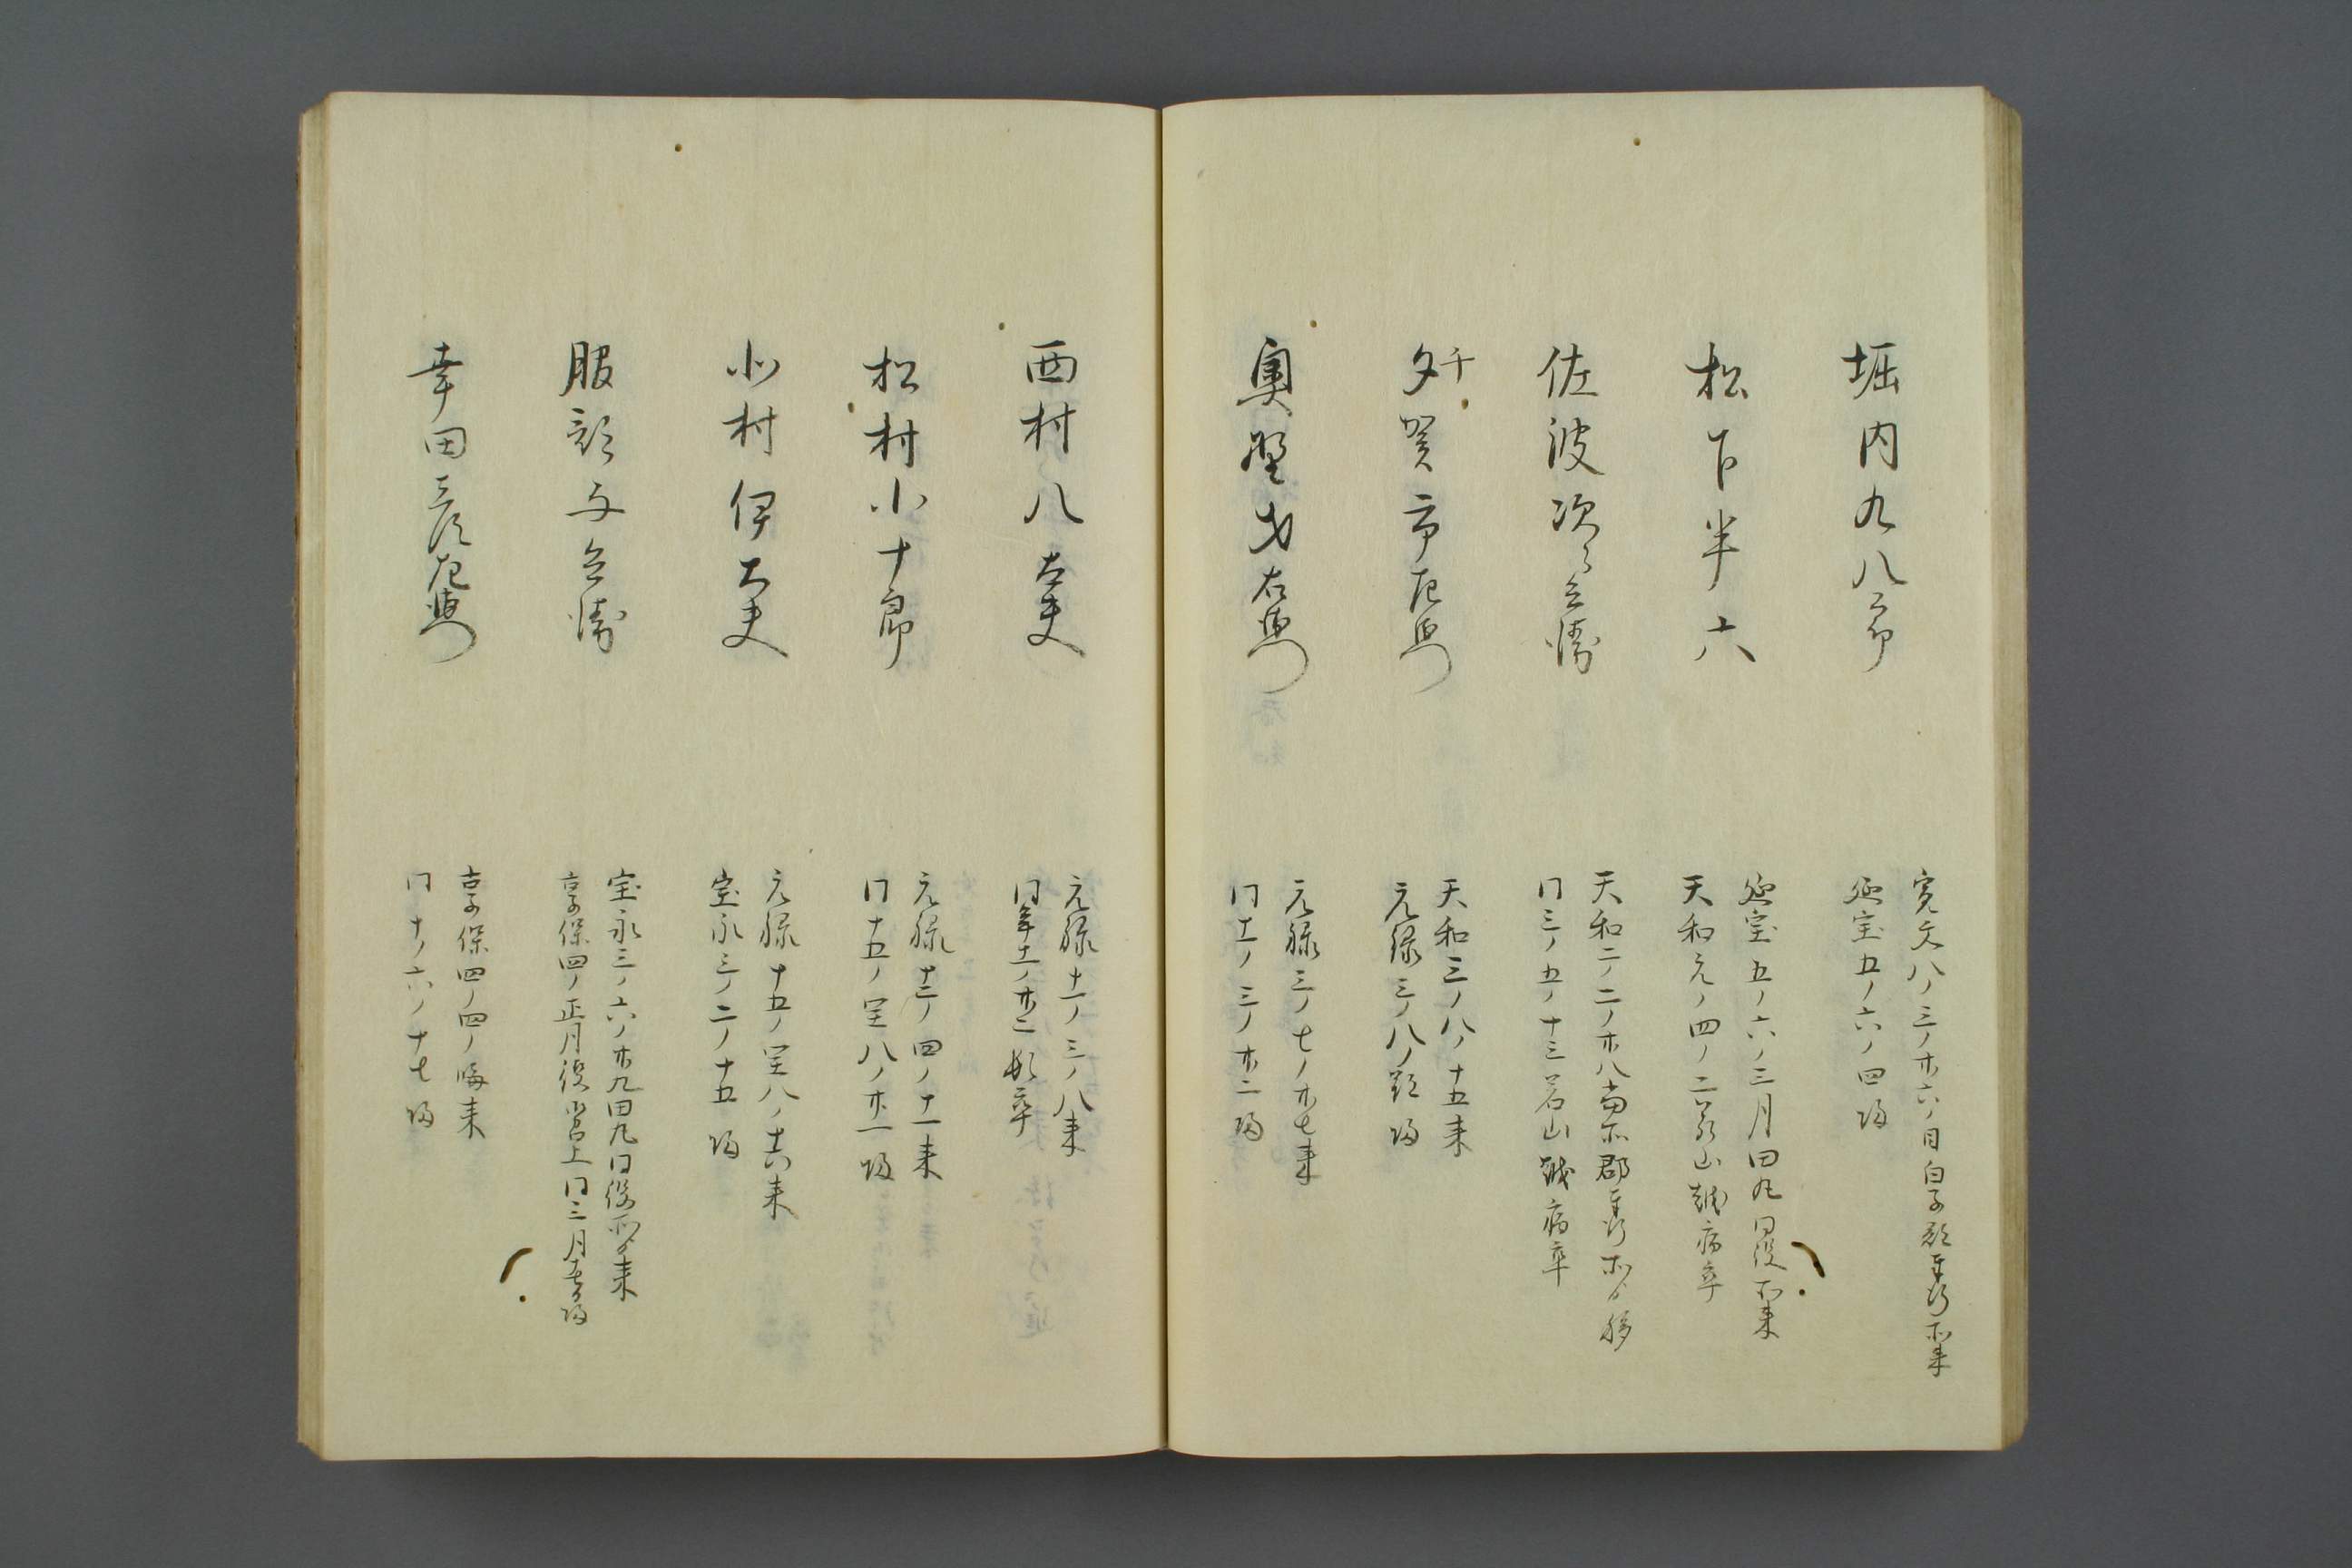 堀内九八郎
寛文八ノ三ノ廿六ノ日白子郡奉行ゟ来
延宝五ノ六ノ四帰
松下半六
延宝五ノ六ノ三月田丸同役ゟ来
天和元ノ四ノ二若山越病卒
佐波次郎兵衛
天和二ノ二ノ廿八当所郡奉行ゟ移
同三ノ五ノ十三若山越病卒
千賀市左衛門
天和三ノ八ノ十五来
元禄三ノ八ノ帰
奥野才右衛門
元禄三ノ七ノ廿七来
同十一ノ三ノ廿二帰
西村八太夫
元禄十一ノ三ノ八来
同年十一ノ廿二卒
松村小十郎
元禄十二ノ四ノ十一来
同十五ノ閏八ノ廿一帰
小村伊太夫
元禄十五ノ閏八ノ十六来
宝永三ノ二ノ十五帰
服部与兵衛
宝永三ノ六ノ廿九田丸同役ゟ来
享保四ノ正月役召上同三月帰
幸田彦左衛門
享保四ノ四ノ晦来
同十ノ六ノ十七帰